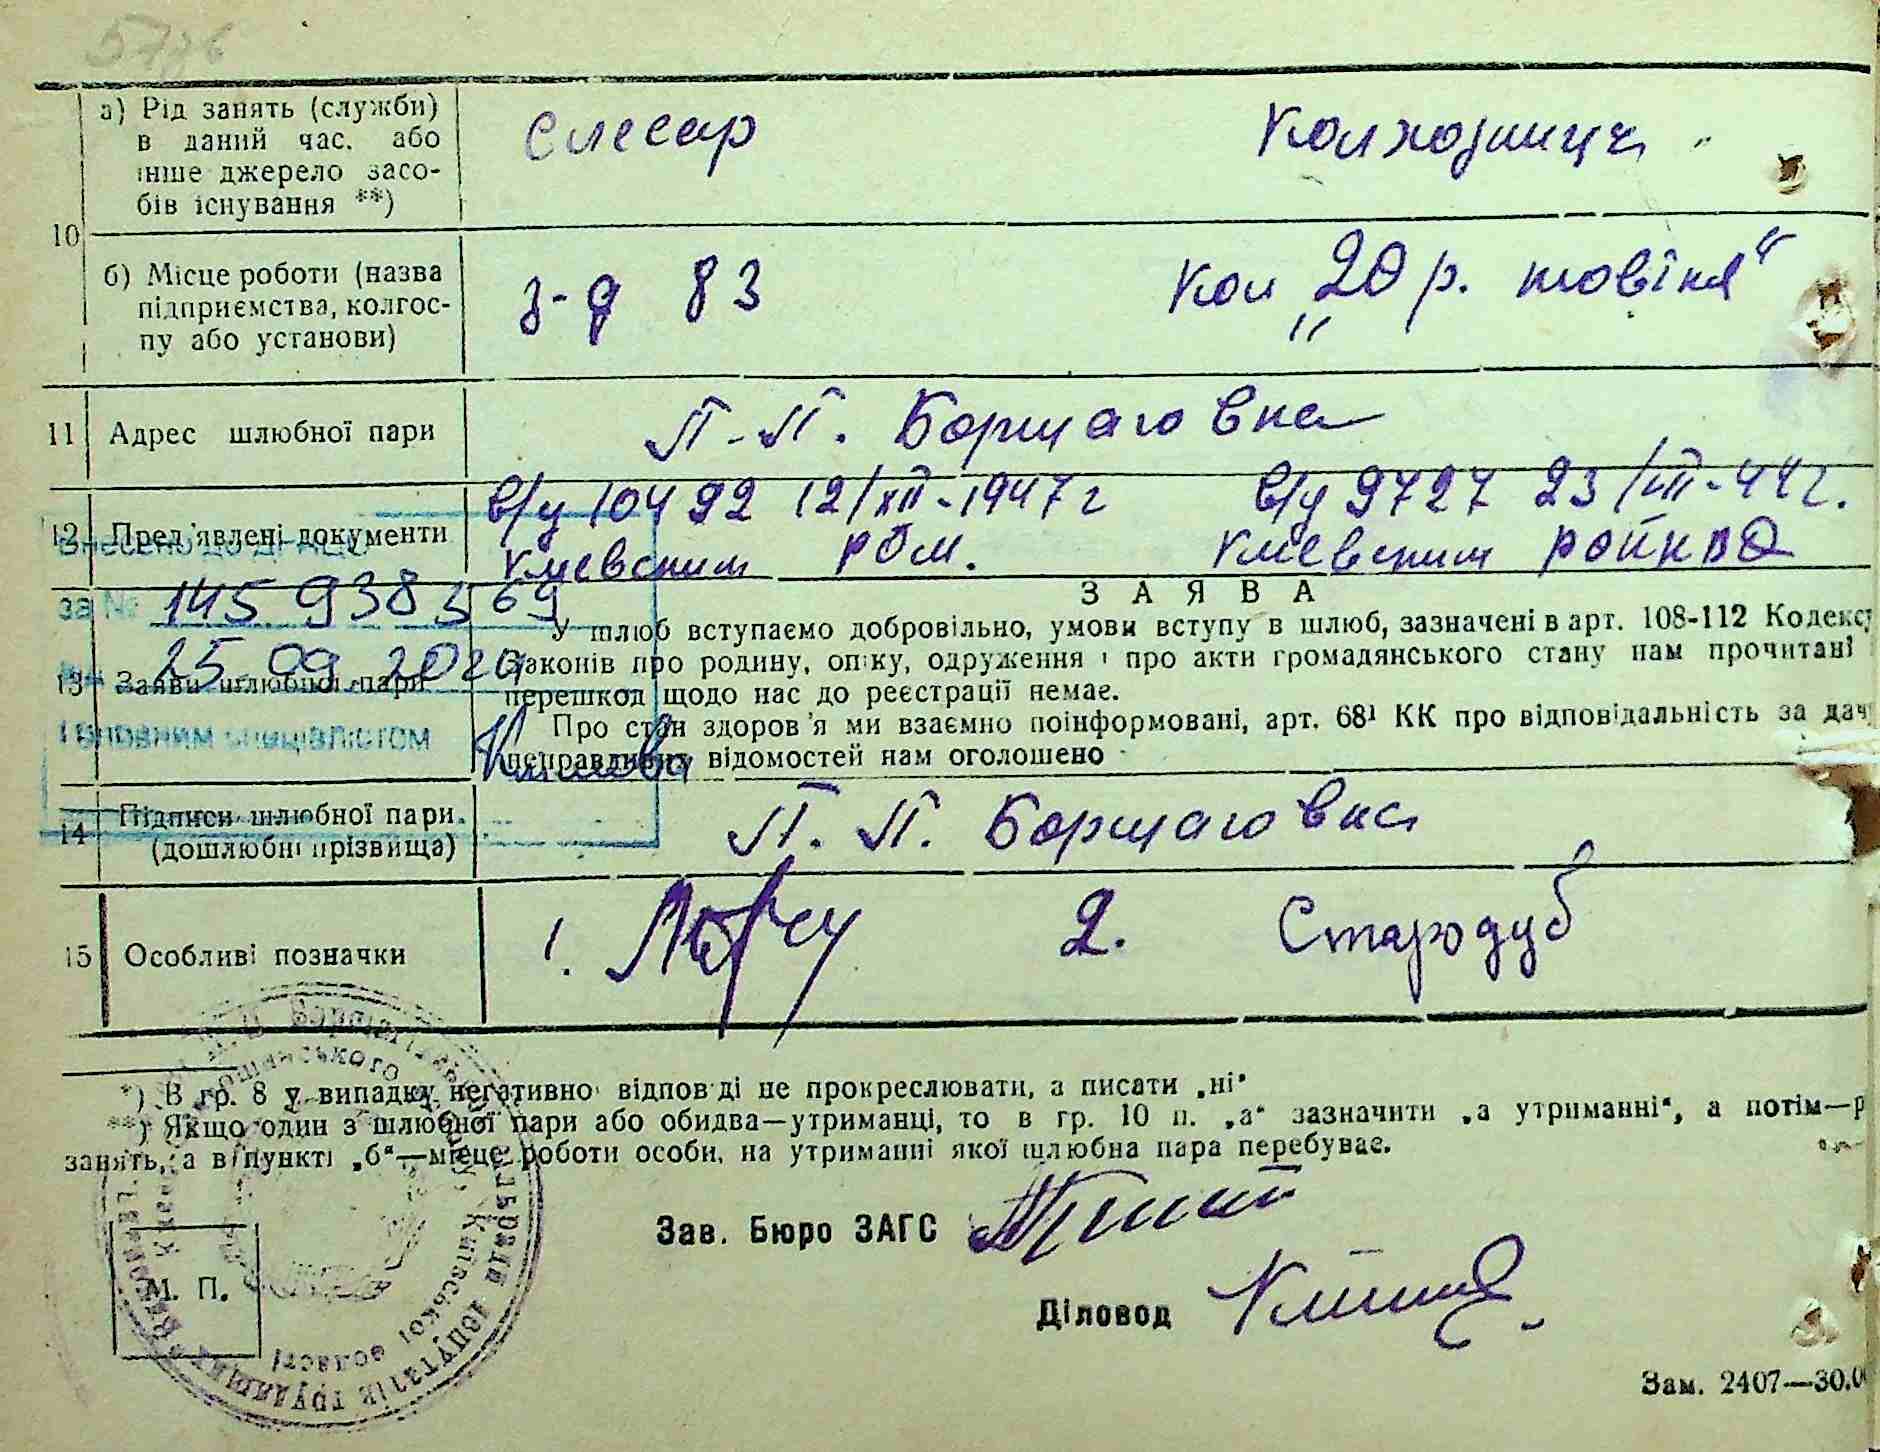 а) Рід занять (служби)
в даний час, або
інше джерело засо-
бів існування **)
Слесар
Колхозниця
10
б) Місце роботи (назва
підприємства, колгос-
пу або установи)
з-д 83
Кол „20 р. жовтня“
11 Адрес шлюбної пари
П-П. Борщаговка
в/у 10492 12/XII-1947 г
в/у 9727 23/VIII-44 г.
12 Пред'явлені документи
Киевским РОМ.
Киевским РОЙНКВД
за № 145 9383 569
ЗАЯВА
У шлюб вступаємо добровільно, умови вступу в шлюб, зазначені в арт. 108-112 Кодексу
25 09 2020
законів про родину, опіку, одруження і про акти громадянського стану нам прочитані
13 Заяви шлюбної пари
перешкод щодо нас до реєстрації немає.
Про стан здоров'я ми взаємно поінформовані, арт. 68¹ КК про відповідальність за дачу
головним спеціалістом
неправдивих відомостей нам оголошено
14 Підписи шлюбної пари
(дошлюбні прізвища)
П. П. Борщаговка
15 Особливі позначки
1.
2. Стародуб
*) В гр. 8 у випадку негативної відповіді не прокреслювати, а писати „ні“
**) Якщо один з шлюбної пари або обидва—утриманці, то в гр. 10 п. „а“ зазначити „а утриманні“, а потім—р
занять, а в пункті „б“—місце роботи особи, на утриманні якої шлюбна пара перебуває.
Зав. Бюро ЗАГС
Діловод
М. П.
Київської області
депутатів трудящих
Зам. 2407—30.0